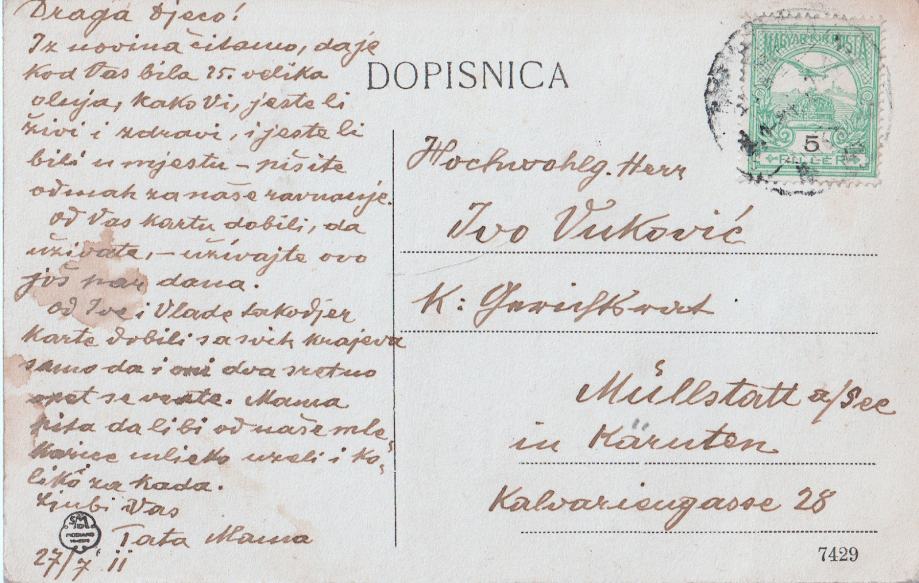 Draga Djeco!
Iz novina čitamo, da je
kod Vas bila 25. velika
oluja, kako Vi, jeste li
živi i zdravi, i jeste li
bili u mjestu – pišite
odmah za naše ravnanje.
Od Vas kartu dobili, da
uživate, – uživajte ovo
još par dana.
Od Ive i Vlade takodjer
karte dobili sa svih krajeva
samo da i oni dva sretno
opet se vrate. Mama
pita da li bi od naše mle-
karice mlieko uzeli i ko-
liko za kada.
Ljubi Vas
Tata Mama
27/7 11
SM
DOPISNICA
MAGYAR KIR. POSTA
5
FILLÉR
Hochwohlg. Herr
Ivo Vuković
K: Gerichtsrat
Müllstatt a/See
in Kärnten
Kalvariengasse 28
7429